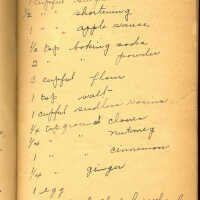 1 cupful sugar
1/2 " " shortening
1 " " apple sauce
1/2 tsp baking soda
2 " " powder
2 cupful flour
1 tsp salt
1 cupful seedless raisins
1/4 tsp ground cloves
1/4 " " nutmeg
1 " " cinnamon
1/4 " ginger
1 egg